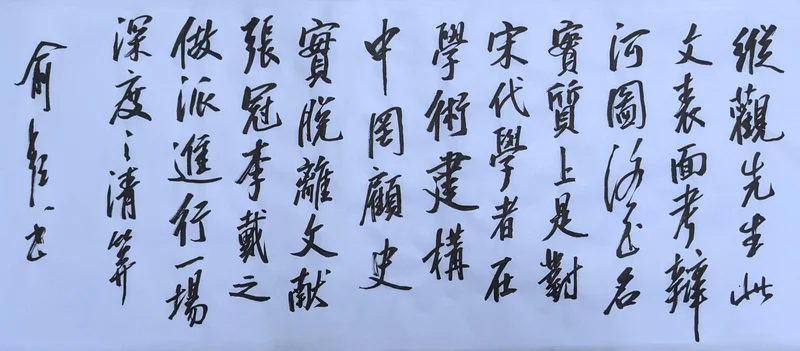 縱觀先生此
文表面考辯
河圖洛書名
實質上是對
宋代學者在
學術建構
中罔顧史
實脫離文献
張冠李戴之
做派進行一場
深度之清算
俞书